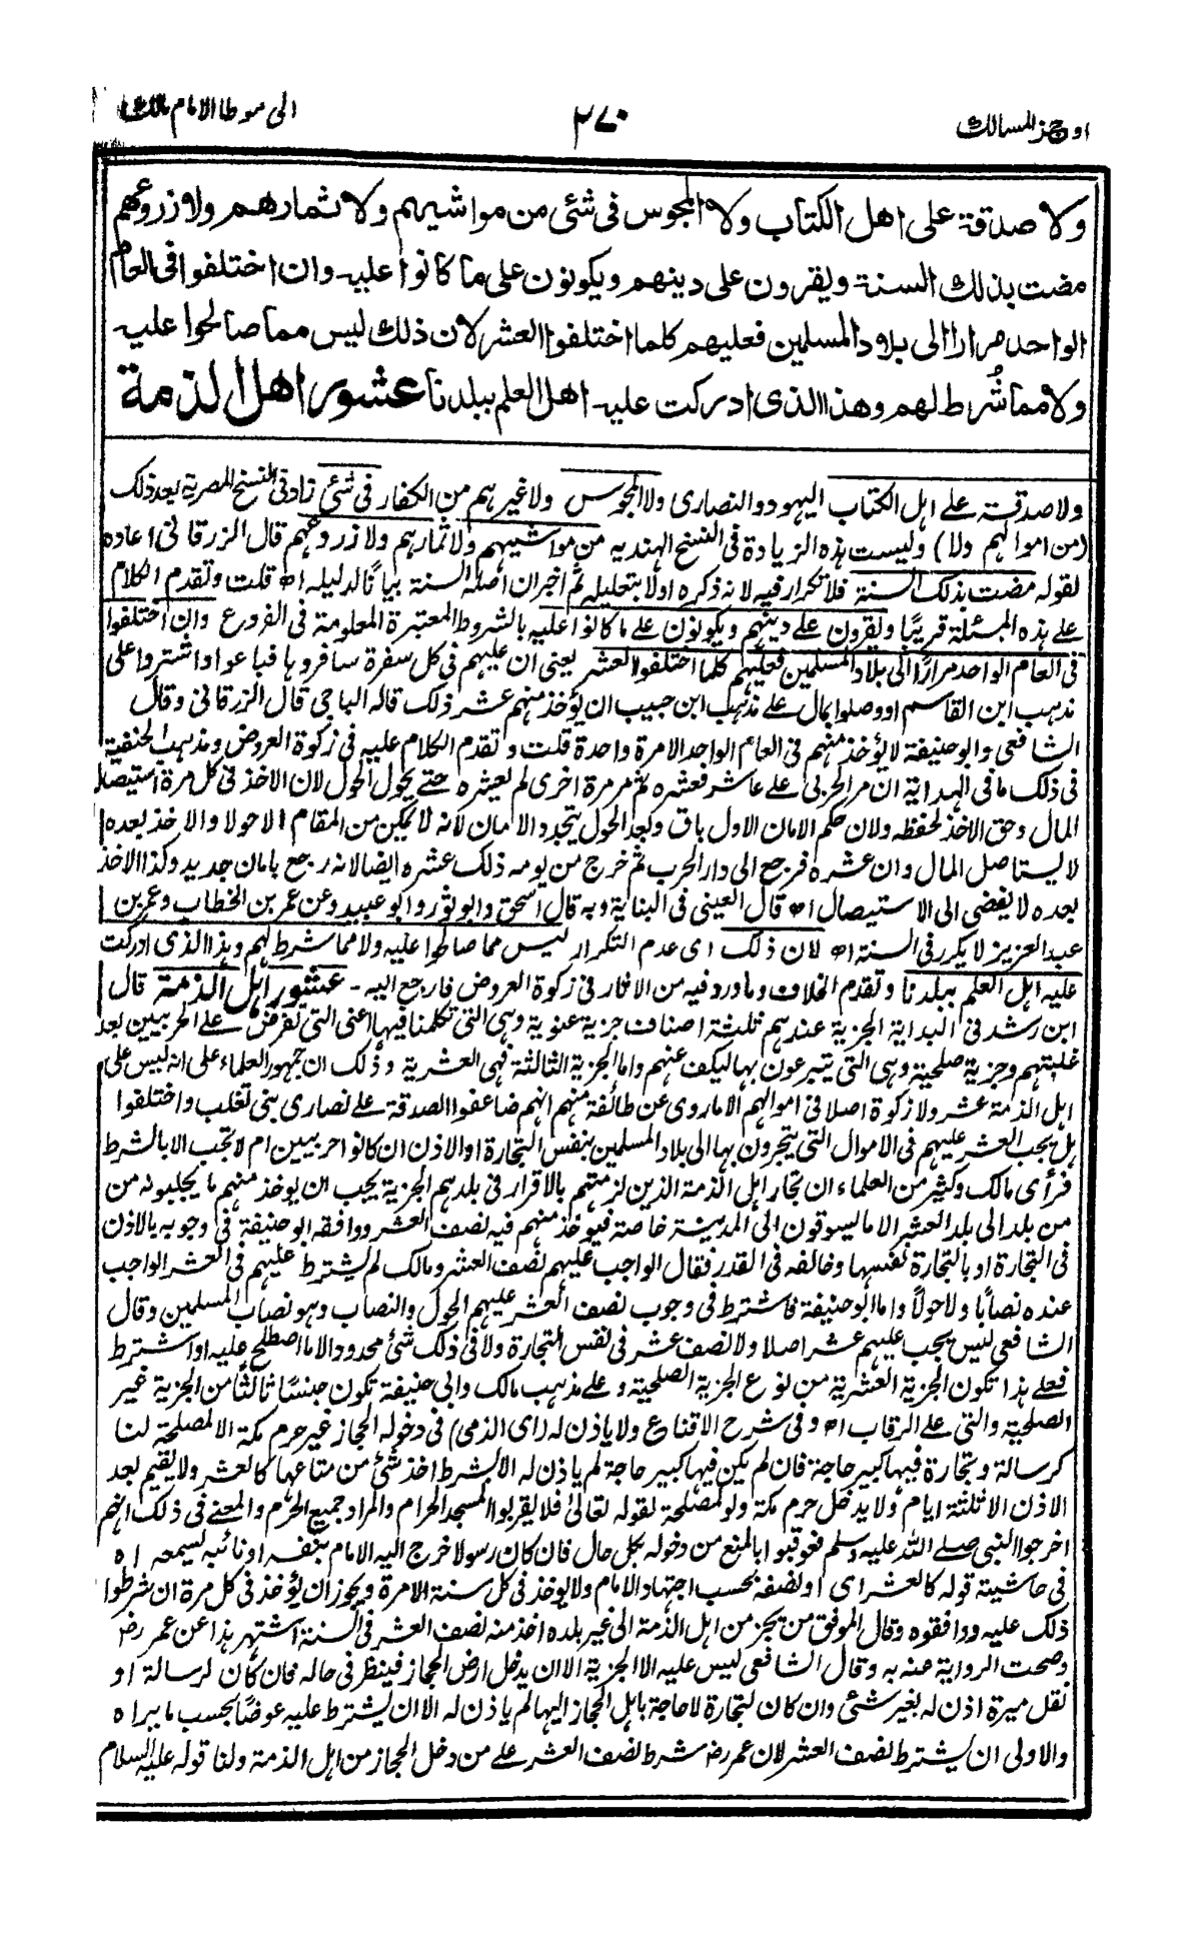 اوجز المسالك
٢٧٠
الى موطا الامام مالك
ولا صدقة على اهل الكتاب ولا المجوس فى شئ من مواشيهم ولا ثمارهم ولا زروعهم
مضت بذلك السنة ويقرون على دينهم ويكونون على ما كانوا عليه وان اختلفوا فى العام
الواحد مرارا الى بلاد المسلمين فعليهم كلما اختلفوا العشر لان ذلك ليس مما صالحوا عليه
ولا مما شُرط لهم وهذا الذى ادركت عليه اهل العلم ببلدنا عشور اهل الذمة
ولا صدقة على اهل الكتاب اليهود والنصارى ولا المجوس ولا غيرهم من الكفار فى شئ زاد فى النسخ المصرية بعد ذلك
(من اموالهم ولا) وليست هذه الزيادة فى النسخ الهنديه من مواشيهم ولا ثمارهم ولا زروعهم قال الزرقانى اعاده
لقوله مضت بذلك السنة فلا تكرار فيه لانه ذكره اولا بتعليله ثم اخبران اصله السنة بيانًا لدليله اه قلت وتقدم الكلام
على هذه المسئلة قريبًا ويقرون على دينهم ويكونون على ما كانوا عليه بالشروط المعتبرة المعلومة فى الفروع وان اختلفوا
فى العام الواحد مرارًا الى بلاد المسلمين فعليهم كلما اختلفوا العشر يعنى ان عليهم فى كل سفرة سافروها فباعوا او اشتروا على
مذهب ابن القاسم او وصلوا بمال على مذهب ابن حبيب ان يؤخذ منهم عشر ذلك قاله الباجى قال الزرقانى وقال
الشافعى وابو حنيفة لا يؤخذ منهم فى العام الواحد الا مرة واحدة قلت وتقدم الكلام عليه فى زكوة العروض ومذهب الحنفية
فى ذلك ما فى الهداية ان مر الحربى على عاشر فعشره ثم مر مرة اخرى لم يعشره حتى يحول الحول لان الاخذ فى كل مرة استيصال
المال وحق الاخذ لحفظه ولان حكم الامان الاول باق وبعد الحول يتجدد الامان لانه لا يمكن من المقام الا حولا والاخذ بعده
لا يستاصل المال وان عشره فرجع الى دار الحرب ثم خرج من يومه ذلك عشره ايضا لانه رجع بامان جديد وكذا الاخذ
بعده لا يفضى الى الاستيصال اه قال العينى فى البناية وبه قال اسحق وابو ثور وابو عبيد وعن عمر بن الخطاب وعمر بن
عبد العزيز لا يكرر فى السنة اه لان ذلك اى عدم التكرار ليس مما صالحوا عليه ولا مما شرط لهم وهذا الذى ادركت
عليه اهل العلم ببلدنا وتقدم الخلاف وما ورد فيه من الاثار فى زكوة العروض فارجع اليه - عشور اهل الذمة قال
ابن رشد فى البداية الجزية عندهم ثلثة اصناف جزية عنوية وهى التى تكلمنا فيها اعنى التى تفرض على الحربيين بعد
غلبتهم وجزية صلحية وهى التى يتبرعون بها ليكف عنهم واما الجزية الثالثة فهى العشرية وذلك ان جمهور العلماء على انه ليس على
اهل الذمة عشر ولا زكوة اصلا فى اموالهم الا ما روى عن طائفة منهم انهم ضاعفوا الصدقة على نصارى بنى تغلب واختلفوا
هل يجب العشر عليهم فى الاموال التى يتجرون بها الى بلاد المسلمين بنفس التجارة او الاذن ان كانوا حربيين ام لا تجب الا بالشرط
فرأى مالك وكثير من العلماء ان تجار اهل الذمة الذين لزمتهم بالاقرار فى بلدهم الجزية يجب ان يوخذ منهم ما يجلبونه من
من بلد الى بلد العشر الا ما يسوقون الى المدينة خاصة فيوخذ منهم فيه نصف العشر ووافقه ابو حنيفة فى وجوبه بالاذن
فى التجارة او بالتجارة نفسها وخالفه فى القدر فقال الواجب عليهم نصف العشر ومالك لم يشترط عليهم فى العشر الواجب
عنده نصابًا ولا حولاً واما ابو حنيفة فاشترط فى وجوب نصف العشر عليهم الحول والنصاب وهو نصاب المسلمين وقال
الشافعى ليس يجب عليهم عشر اصلا ولا نصف عشر فى نفس التجارة ولا فى ذلك شئ محدود الا ما اصطلح عليه او اشترط
فعلى هذا تكون الجزية العشرية من نوع الجزية الصلحية وعلى مذهب مالك وابى حنيفة تكون جنسًا ثالثًا من الجزية غير
الصلحية والتى على الرقاب اه وفى شرح الاقناع ولا ياذن له (اى الذمى) فى دخوله الحجاز غير حرم مكة الا لمصلحة لنا
كرسالة وتجارة فيها كبير حاجة فان لم يكن فيها كبير حاجة لم ياذن له الا بشرط اخذ شئ من متاعها كالعشر ولا يقيم بعد
الاذن الا ثلثة ايام ولا يدخل حرم مكة ولو لمصلحة لقوله تعالى فلا يقربوا المسجد الحرام والمراد جميع الحرم والمعنى فى ذلك انهم
اخرجوا النبى صلى الله عليه وسلم فعوقبوا بالمنع من دخوله بكل حال فان كان رسولا خرج اليه الامام بنفسه او نائبه ليسمعه اه
فى حاشيته قوله كالعشر اى او نصفه بحسب اجتهاد الامام ولا يوخذ فى كل سنة الا مرة ويجوز ان يؤخذ فى كل مرة ان شرطوا
ذلك عليه ووافقوه وقال الموفق من يجز من اهل الذمة الى غير بلده اخذ منه نصف العشر فى السنة اشتهر هذا عن عمر رض
وصحت الرواية عنه به وقال الشافعى ليس عليه الا الجزية الا ان يدخل ارض الحجاز فينظر فى حاله فان كان لرسالة او
نقل ميرة اذن له بغير شئ وان كان لتجارة لا حاجة باهل الحجاز اليها لم ياذن له الا ان يشترط عليه عوضًا بحسب ما يراه
والاولى ان يشترط نصف العشر لان عمر رض شرط نصف العشر على من دخل الحجاز من اهل الذمة ولنا قوله عليه السلام